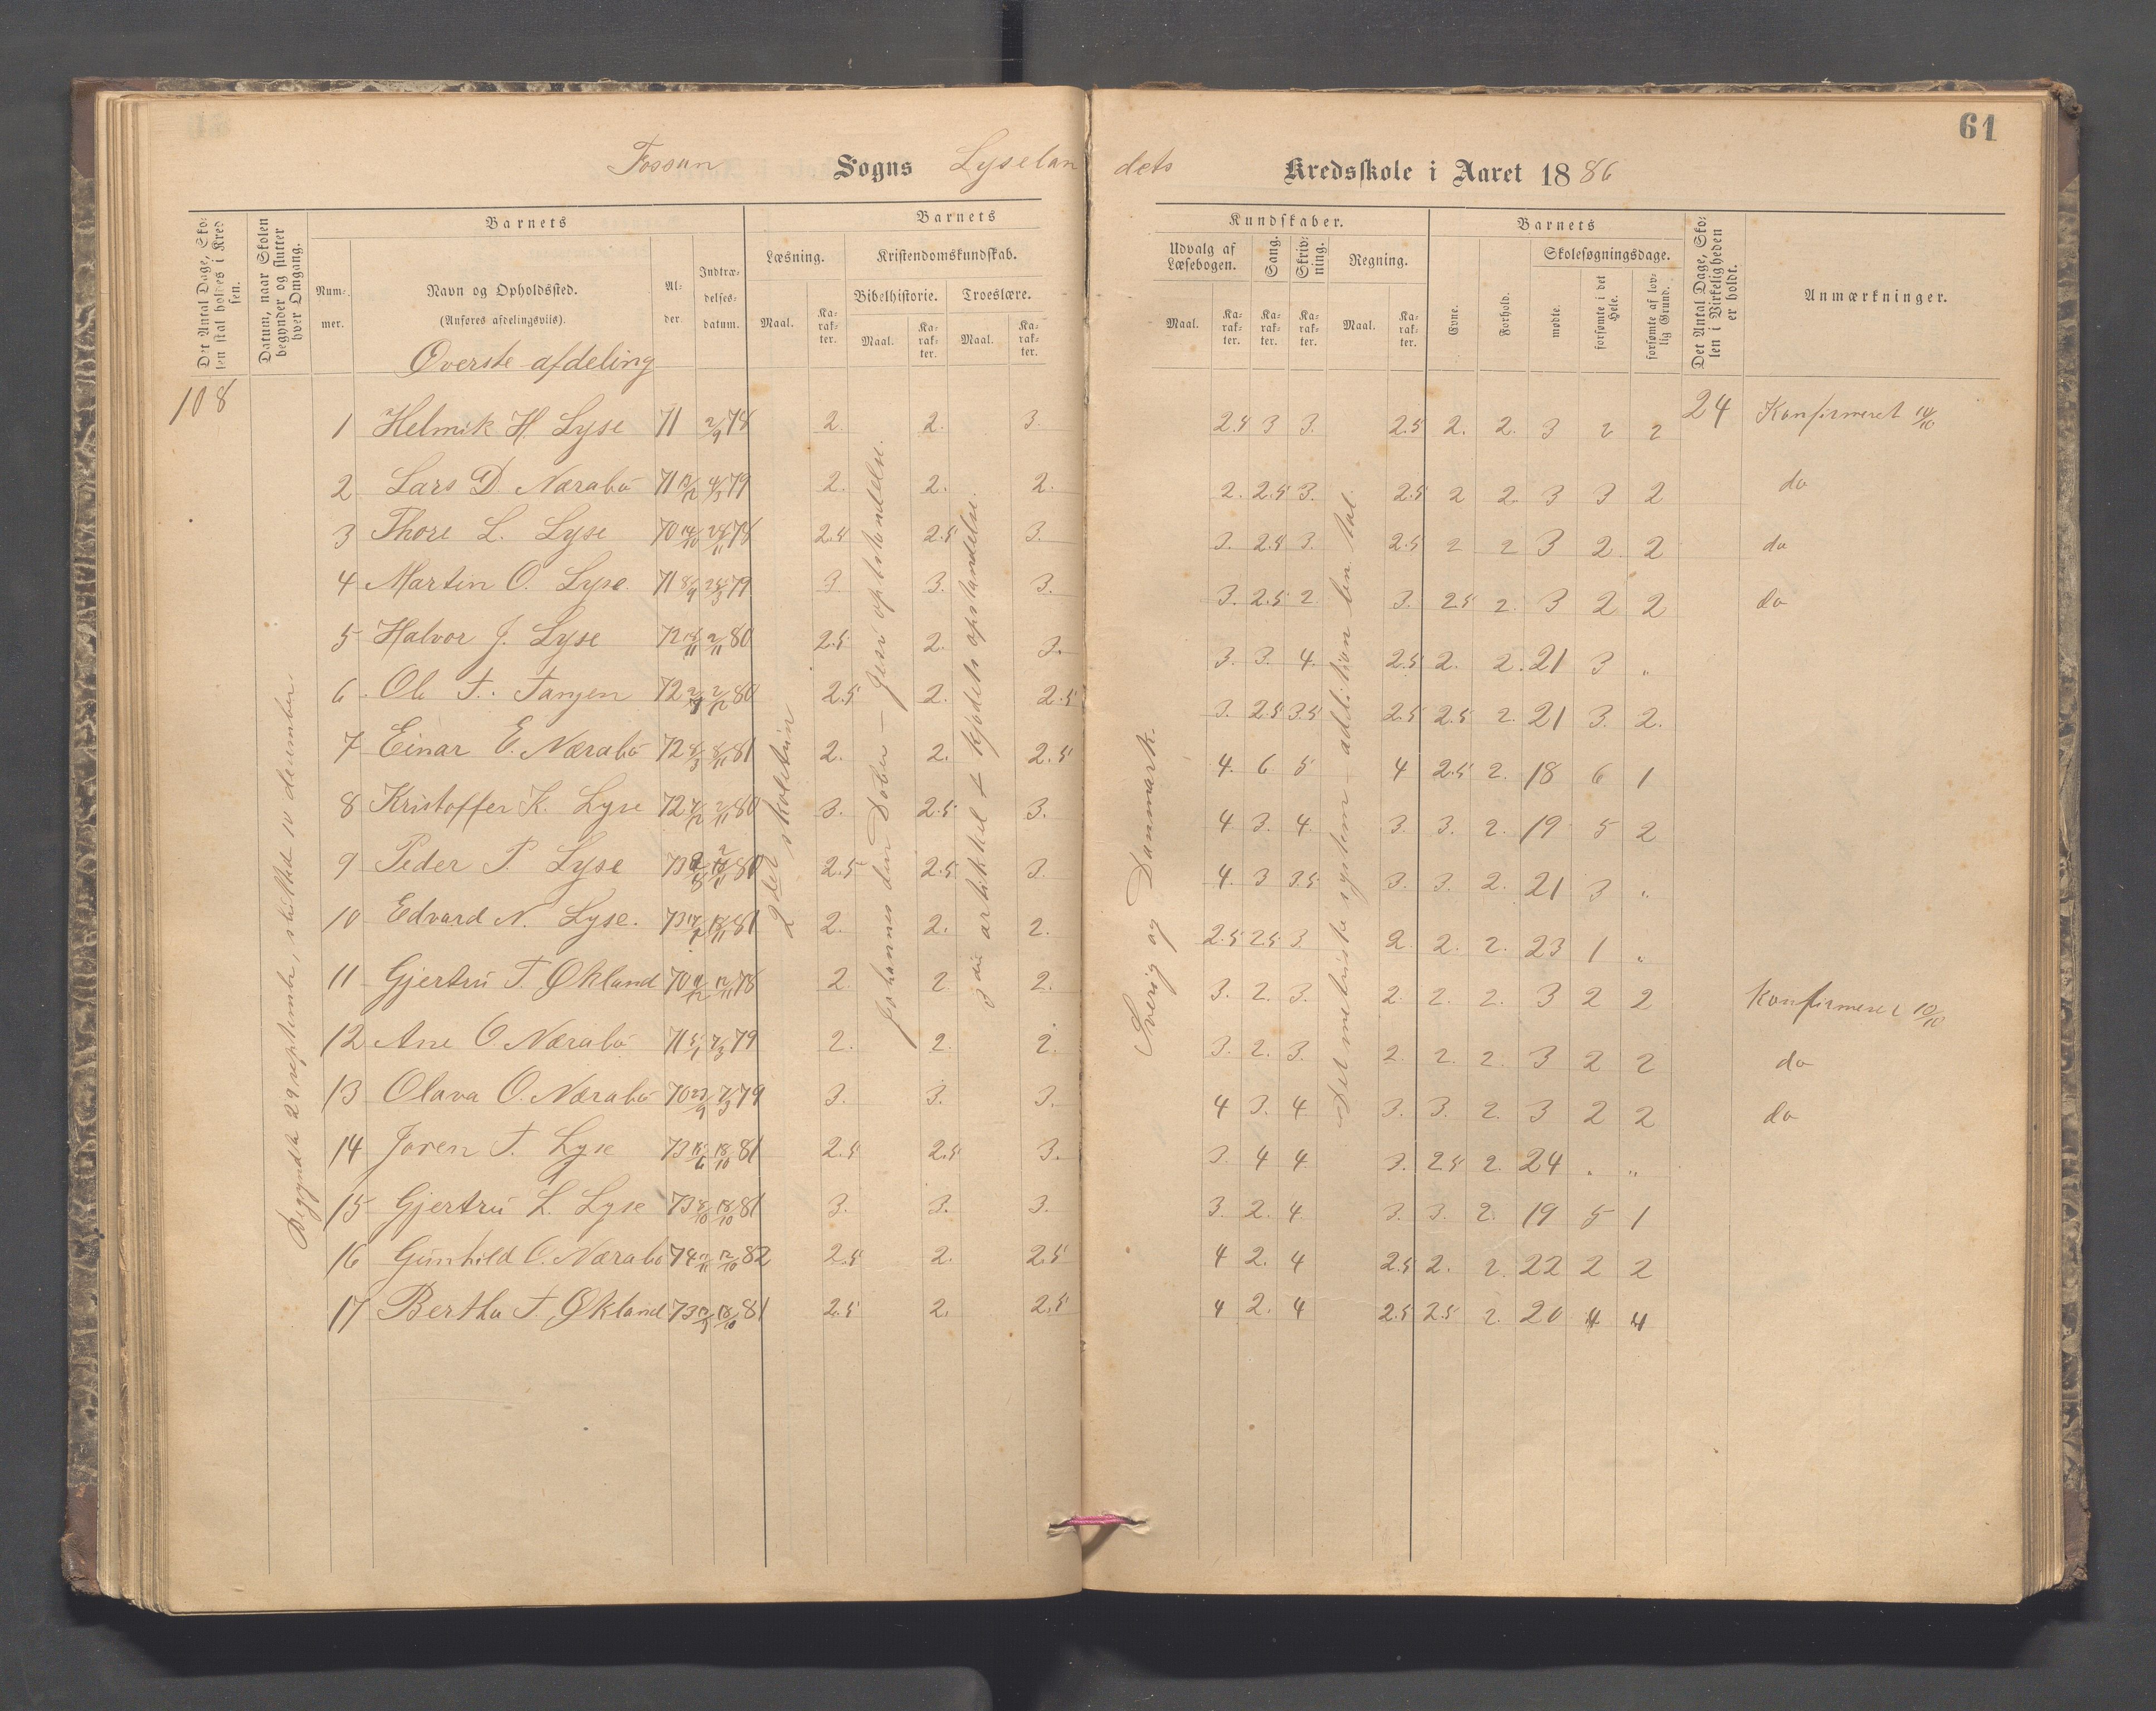 61
Fossan Sogns Lyselan dets Kredsskole i Aaret 1886
Det Antal Dage, Skolen skal holdes i Kredsen.
Datum, naar Skolen begynder og slutter hver Omgang.
Barnets
Nummer.
Navn og Opholdssted.
(Anføres afdelingsvis).
Alder.
Indtrædelsesdatum.
Barnets
Læsning.
Kristendomskundskab.
Bibelhistorie.
Troeslære.
Maal.
Karakter.
Maal.
Karakter.
Maal.
Karakter.
Kundskaber.
Udvalg af Læsebogen.
Sang.
Skrivning.
Regning.
Maal.
Karakter.
Karakter.
Karakter.
Maal.
Karakter.
Barnets
Evne.
Forhold.
Skolesøgningsdage.
mødte.
forsømte i det Hele.
forsømte af lovlig Grund.
Det Antal Dage, Skolen i Virkeligheden er holdt.
Anmærkninger.
Øverste afdeling
108
Begyndte 29 september, sluttede 10 desember
2det skoletrin
Johannes den Døber – Jesu opstandelse.
3die artikkel & kjødets opstandelse.
Sverig og Danmark.
Det metriske system – addition ben. tal.
24
1 Helmik H. Lyse 71 2/9 78 2. 2. 3. 2.5 3 3. 2.5 2. 2. 3 2 2 Konfirmeret 10/10
2 Lars D. Nærabø 71 4/3 79 2. 2. 2. 2. 2.5 3. 2.5 2 2. 3 3 2 do
3 Thore L. Lyse 70 78 2.5 2.5 3. 3. 2.5 3. 2.5 2 2 3 2 2 do
4 Martin O. Lyse. 71 79 3. 3. 3. 3. 2.5 2. 3. 2.5 2. 3 2 2 do
5 Halvor J. Lyse 72 2/11 80 2.5 2. 3. 3. 3. 4. 2.5 2. 2. 21 3 "
6 Ole T. Tanjen 72 80 2.5 2. 2.5 3. 2.5 3.5 2.5 2.5 2. 21 3. 2.
7 Einar E. Nærabø 72 8/11 81 2. 2. 2.5 4. 6 5 4 2.5 2. 18 6 1
8 Kristoffer K. Lyse 72 2/11 80 3. 2.5 3. 4 3. 4. 3. 3. 2. 19 5 2
9 Peder P. Lyse 73 80 2.5 2.5 3. 4. 3 3.5 3. 3. 2. 21 3 "
10 Edvard N. Lyse. 73 18/11 81 2. 2. 2. 2.5 2.5 3 2. 2. 2. 23 1 "
11 Gjertru T. Økland 70 12/11 78 2. 2. 2. 3. 2. 3. 2. 2. 2. 3 2 2 Konfirmeret 10/10
12 Ane O. Nærabø 71 7/3 79 2. 2. 2. 3. 2. 3. 2. 2. 2. 3 2 2 do
13 Olava O. Nærabø 70 23/9 7/3 79 3. 3. 3. 4 3. 4 3. 3. 2. 3 2 2 do
14 Joren T. Lyse 73 18/10 81 2.5 2.5 3. 3. 4 4 3. 2.5 2. 24 " "
15 Gjertru L. Lyse 73 18/10 81 3. 3. 3. 3. 2. 4. 3. 3. 2. 19 5 1
16 Gunhild O. Nærabø 74 12/10 82 2.5 2. 2.5 4 2. 4 2.5 2. 2. 22 2 2
17 Bertha T. Økland 73 18/10 81 2.5 2. 2.5 4 2. 4 2.5 2.5 2. 20 4 4